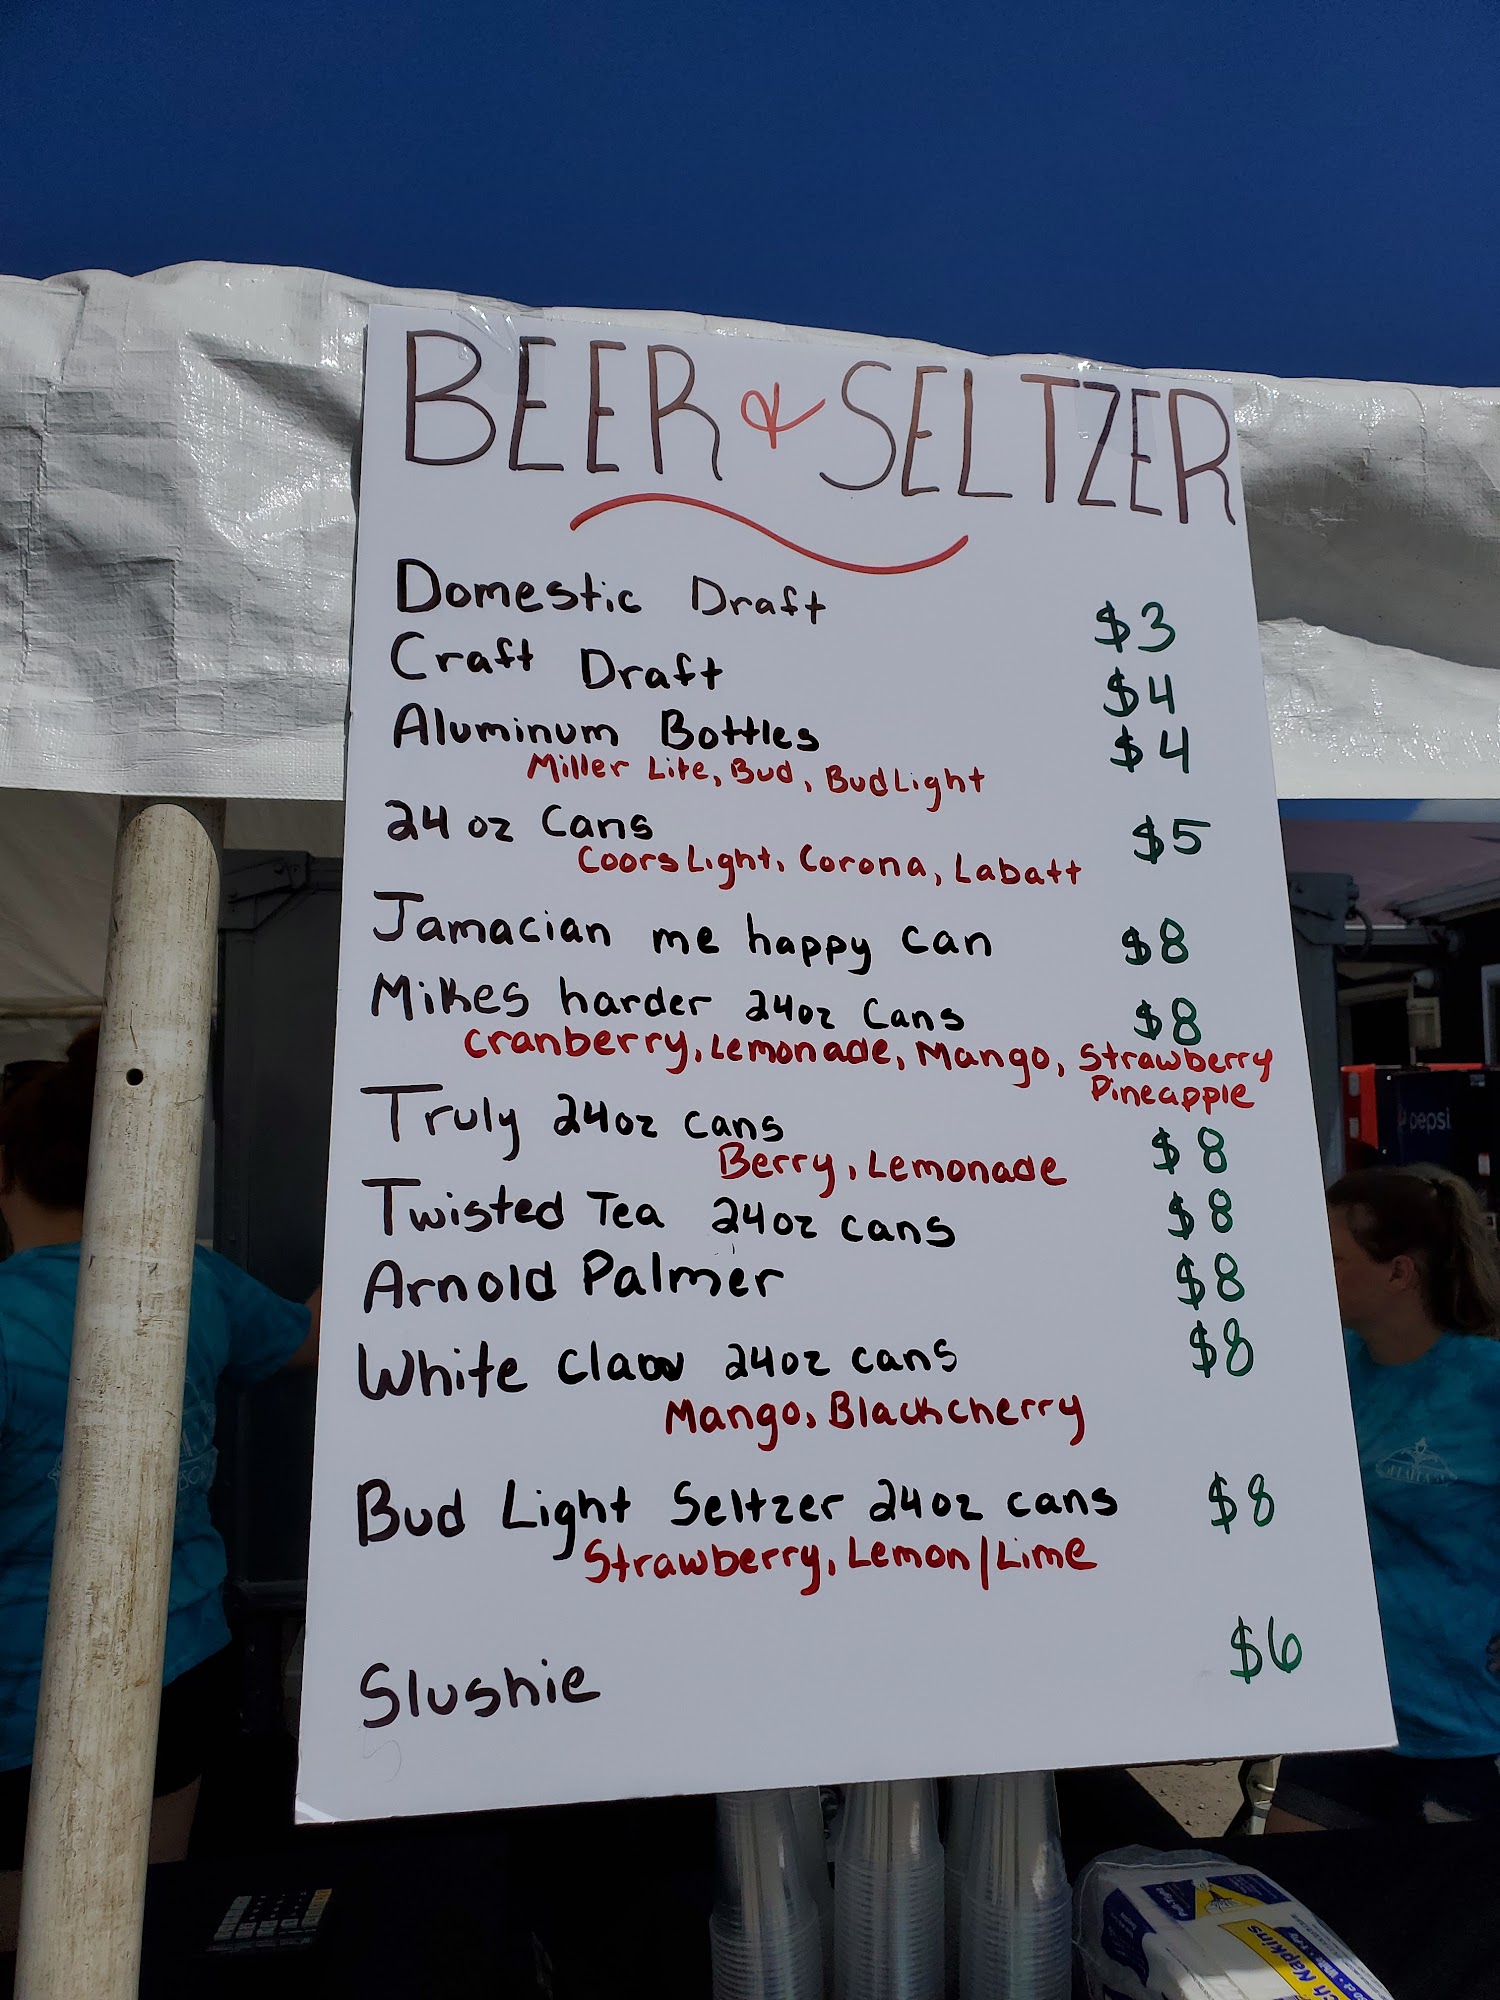 BEER & SELTZER
Domestic Draft $3
Craft Draft $4
Aluminum Bottles $4
Miller Lite, Bud, Bud Light
24 oz Cans $5
Coors Light, Corona, Labatt
Jamacian me happy can $8
Mikes harder 24oz Cans $8
Cranberry, Lemonade, Mango, Strawberry
Pineapple
Truly 24oz cans $8
Berry, Lemonade
Twisted Tea 24oz cans $8
Arnold Palmer $8
White Claw 24oz cans $8
Mango, Blackcherry
Bud Light Seltzer 24oz cans $8
Strawberry, Lemon/Lime
Slushie $6
pepsi
Napkins